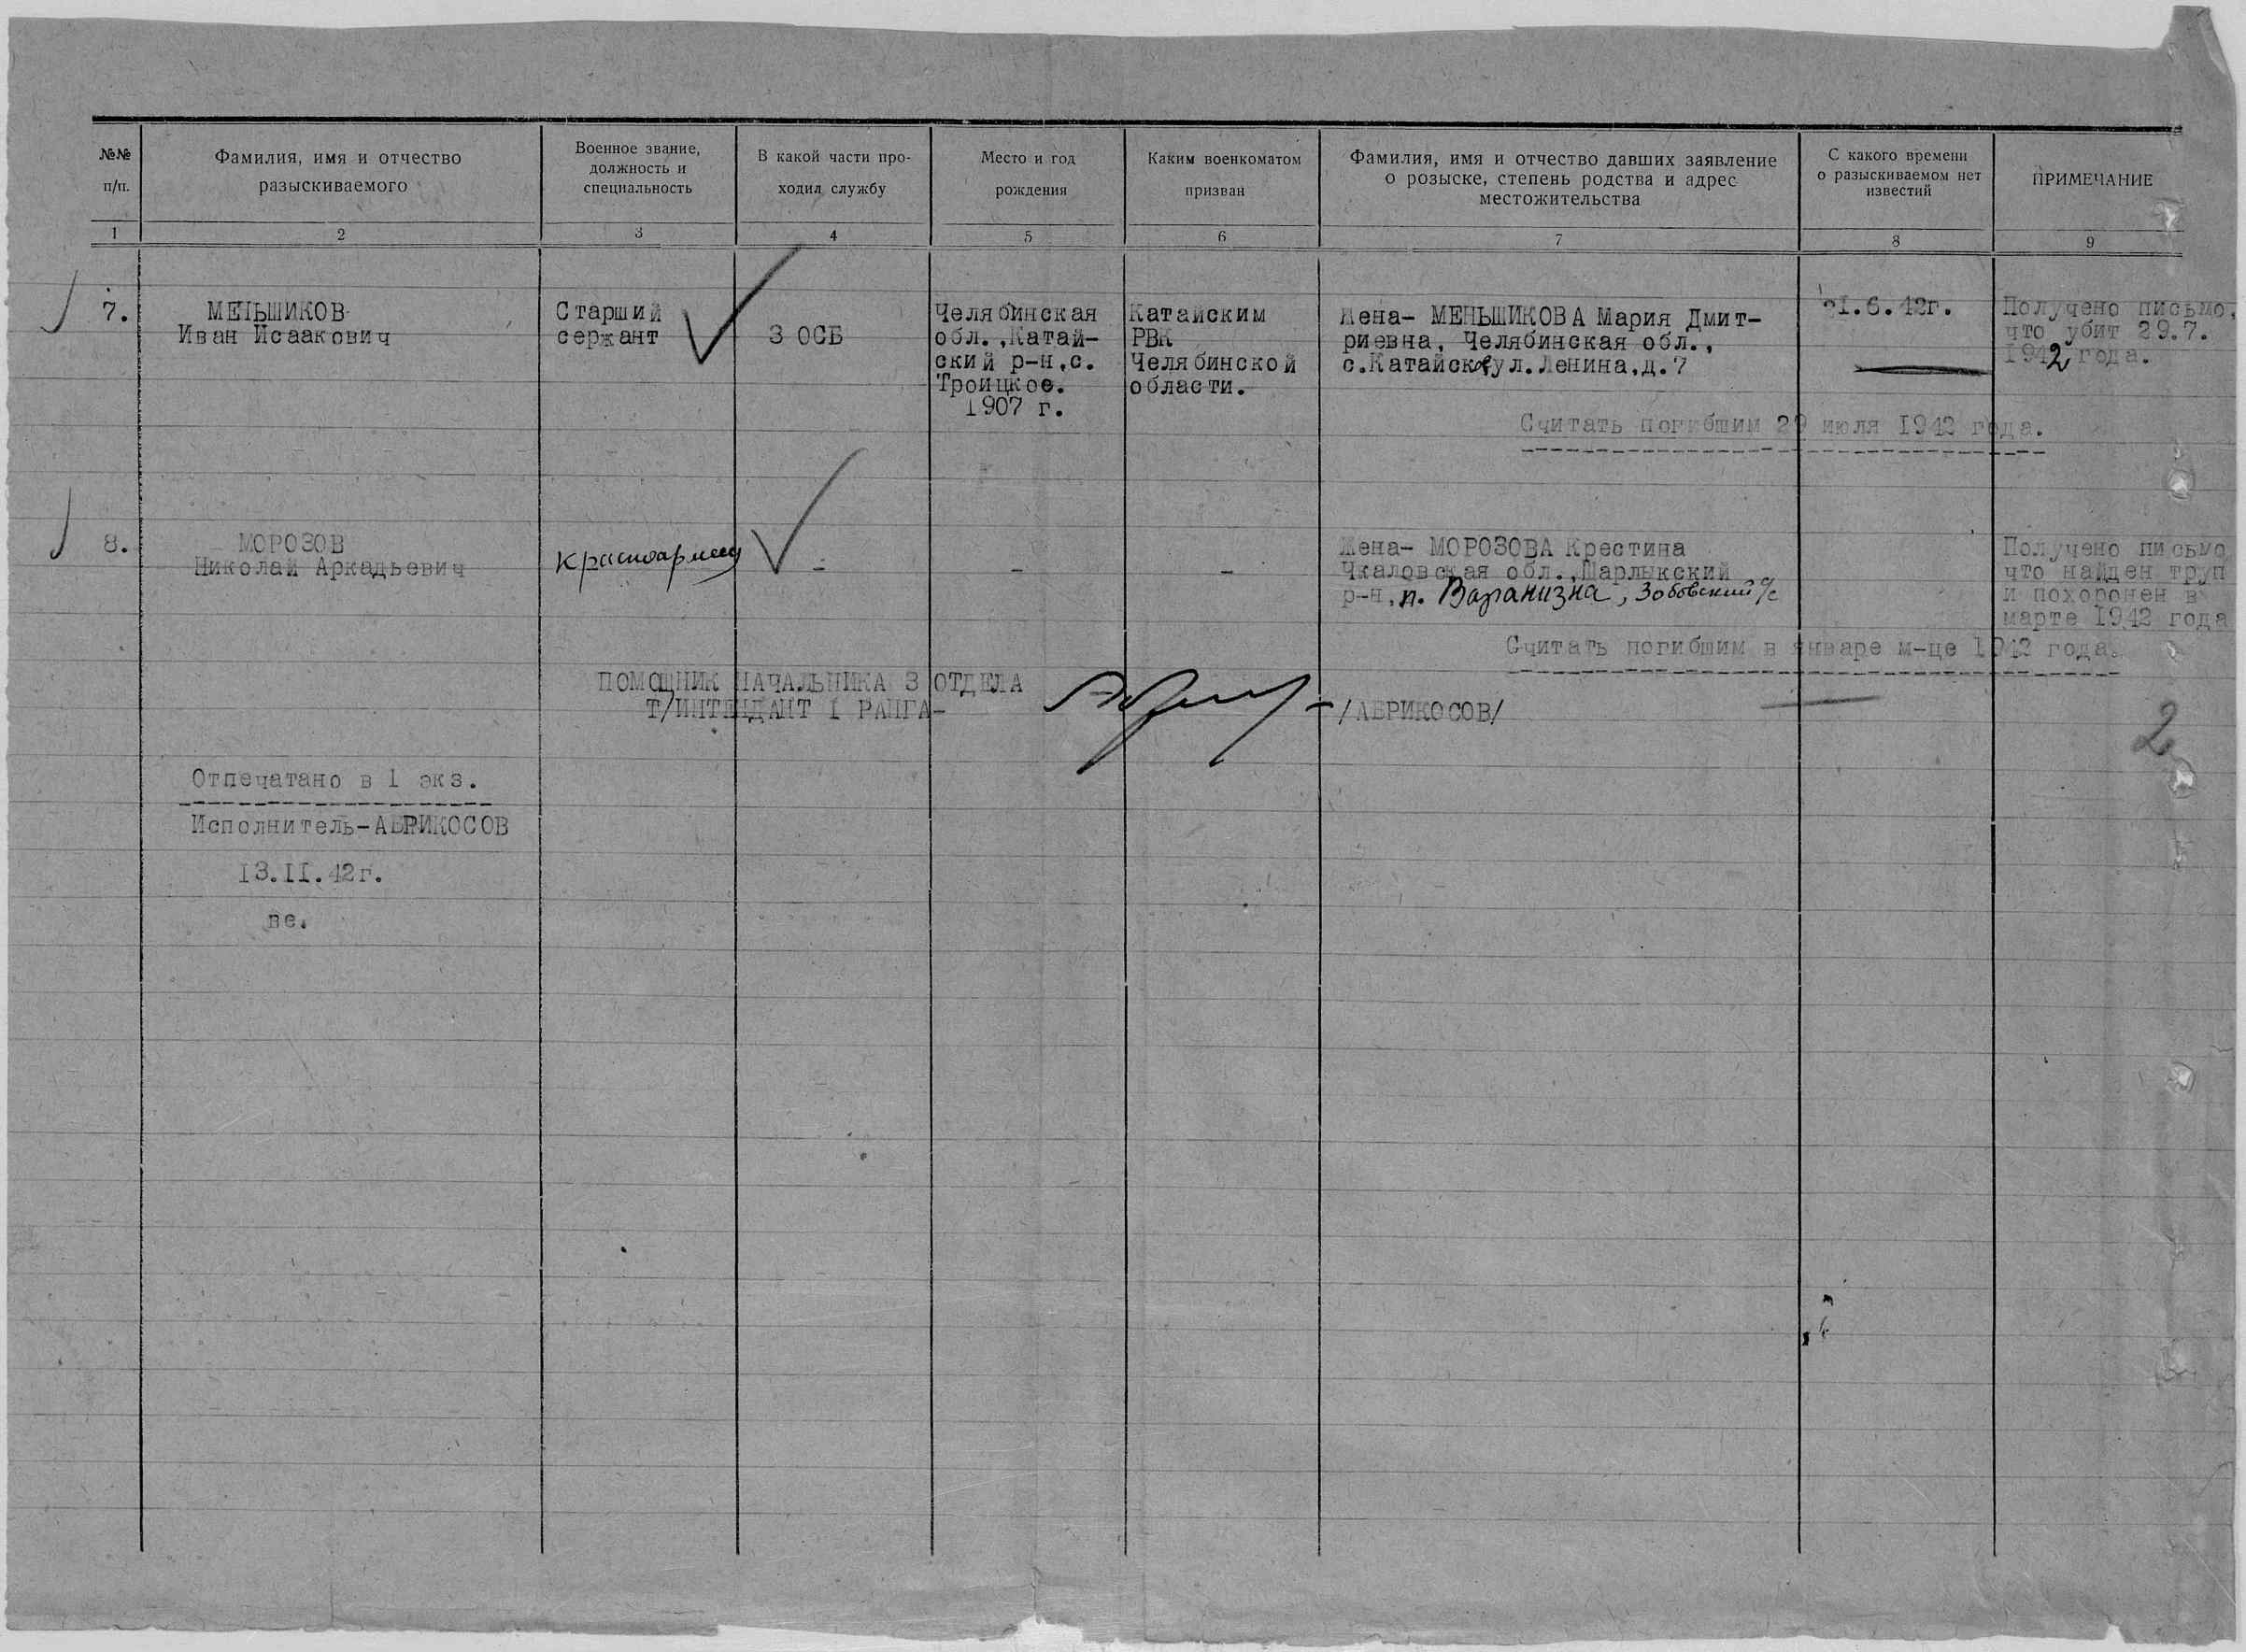 №№
п/п.
Фамилия, имя и отчество
разыскиваемого
Военное звание,
должность и
специальность
В какой части про-
ходил службу
Место и год
рождения
Каким военкоматом
призван
Фамилия, имя и отчество давших заявление
о розыске, степень родства и адрес
местожительства
С какого времени
о разыскиваемом нет
известий
ПРИМЕЧАНИЕ
1 2 3 4 5 6 7 8 9
7.
МЕНЬШИКОВ
Иван Исаакович
Старший
сержант
3 ОСБ
Челябинская
обл.,Катай-
ский р-н,с.
Троицкое.
1907 г.
Катайским
РВК
Челябинской
области.
Жена- МЕНЬШИКОВА Мария Дмит-
риевна, Челябинская обл.,
с.Катайск, ул.Ленина,д.7
1.6.42г.
Получено письмо,
что убит 29.7.
1942 года.
Считать погибшим 29 июля 1942 года.
8.
МОРОЗОВ
Николай Аркадьевич
Красноармеец
-
-
-
Жена- МОРОЗОВА Крестина
Чкаловская обл.,Шарлыкский
р-н, п. Варанизна, Зобовский с/с
Получено письмо
что найден труп
и похоронен в
марте 1942 года
Считать погибшим в январе м-це 1942 года.
ПОМОЩНИК НАЧАЛЬНИКА 3 ОТДЕЛА
Т/ИНТЕНДАНТ 1 РАНГА-
/АБРИКОСОВ/
2
Отпечатано в 1 экз.
Исполнитель-АБРИКОСОВ
13.II.42г.
ве.